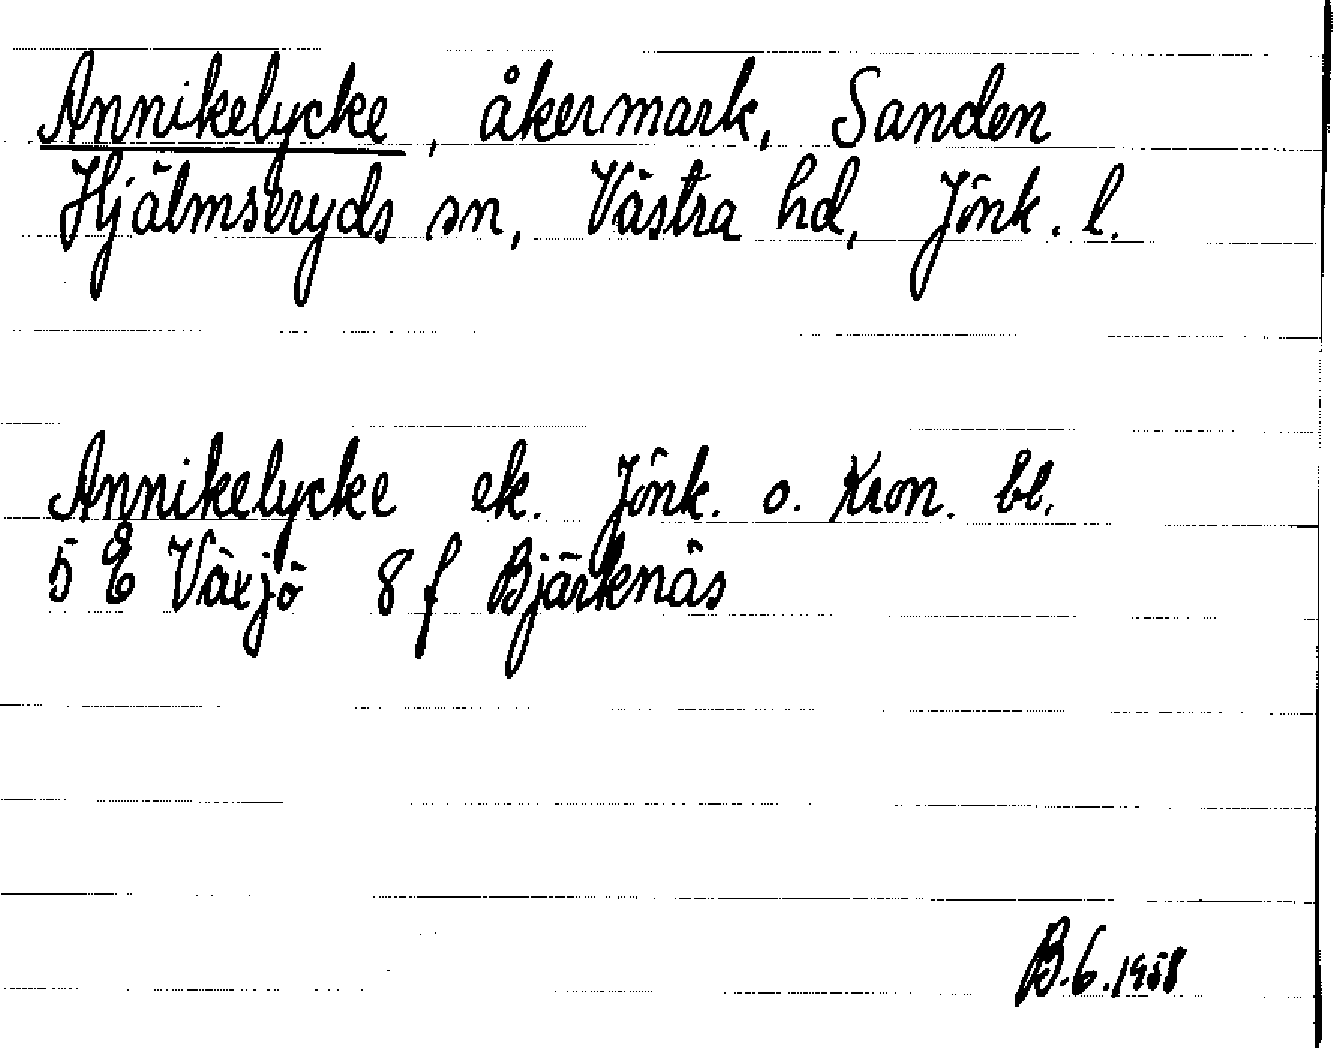 Annikelycke, åkermark, Sanden
Hjälmseryds sn, Västra hd, Jönk. l.
Annikelycke ek. Jönk. o. Kron. bl.
5 E Växjö 8 f Bjärknäs
B.G.1958